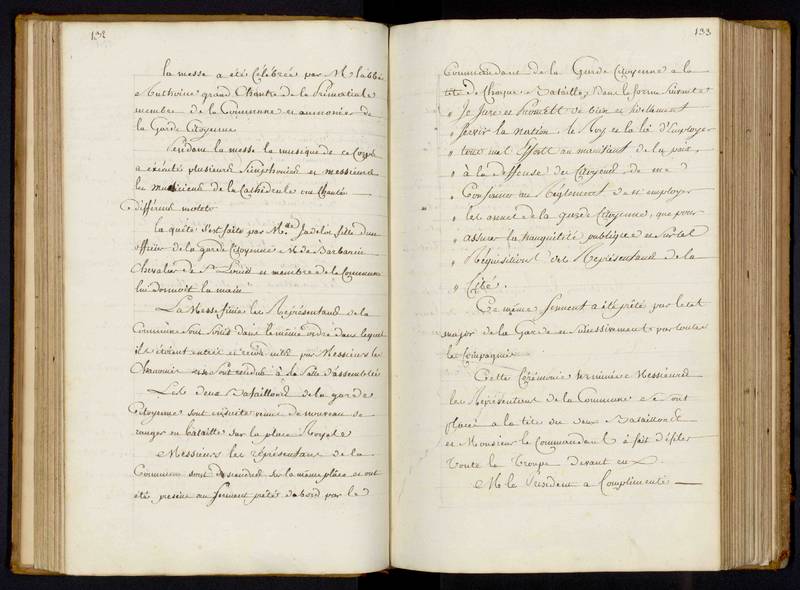 132
la messe a été Célébrée par M l'abbé
Anthoine grand Chantre de la Primatiale
membre de la Commune et aumonier de
la Garde Citoyenne
Pendant la messe la musique de ce Corps
a éxécuté plusieurs Simphonies et messieurs
les musiciens de la Cathédrale ont Chantés
différens motets
la quête s'est faite par Mlle Jadelot fille d'un
officier de la garde Citoyenne M de Barbarin
Chevalier de St Louis et membre de la Commune
lui donnoit la main
La Messe finie les Représentans de la
Commune sont sortis dans le même ordre dans lequel
ils étoient entrés et reconduits par Messieurs les
Chanoines se sont rendus à la Salle d'assemblée
Les deux Bataillons de la garde
Citoyenne sont ensuite venus de nouveau se
ranger en bataille sur la place Royale
Messieurs les représentans de la
Commune sont descendus sur la même place et ont
été présens au serment prêté d'abord par le
133
Commandant de la Garde Citoyenne a la
tête de Chaque Bataillon dans la forme suivante
" Je Jure et Promett de bien et fidellement
" servir la nation le Roy et la loi d'Employer
" tous mes Efforts au maintient de la paix,
" à la deffense des Citoyens, de me
" Conformer au Réglement de n'employer
" les armes de la garde Citoyenne, que pour
" assurer la tranquilité publique et sur les
" Réquisitions des Représentans de la
" Cité.
Ce même serment a été prêté par l'etat
major de la Garde et successivement par toutes
les Compagnies
Cette Cérémonie terminée Messieurs
les Représentans de la Commune se sont
placés a la tête des deux Bataillons
et Monsieur le Commandant a fait défiler
toute la Troupe devant eux
M le President a Complimenté